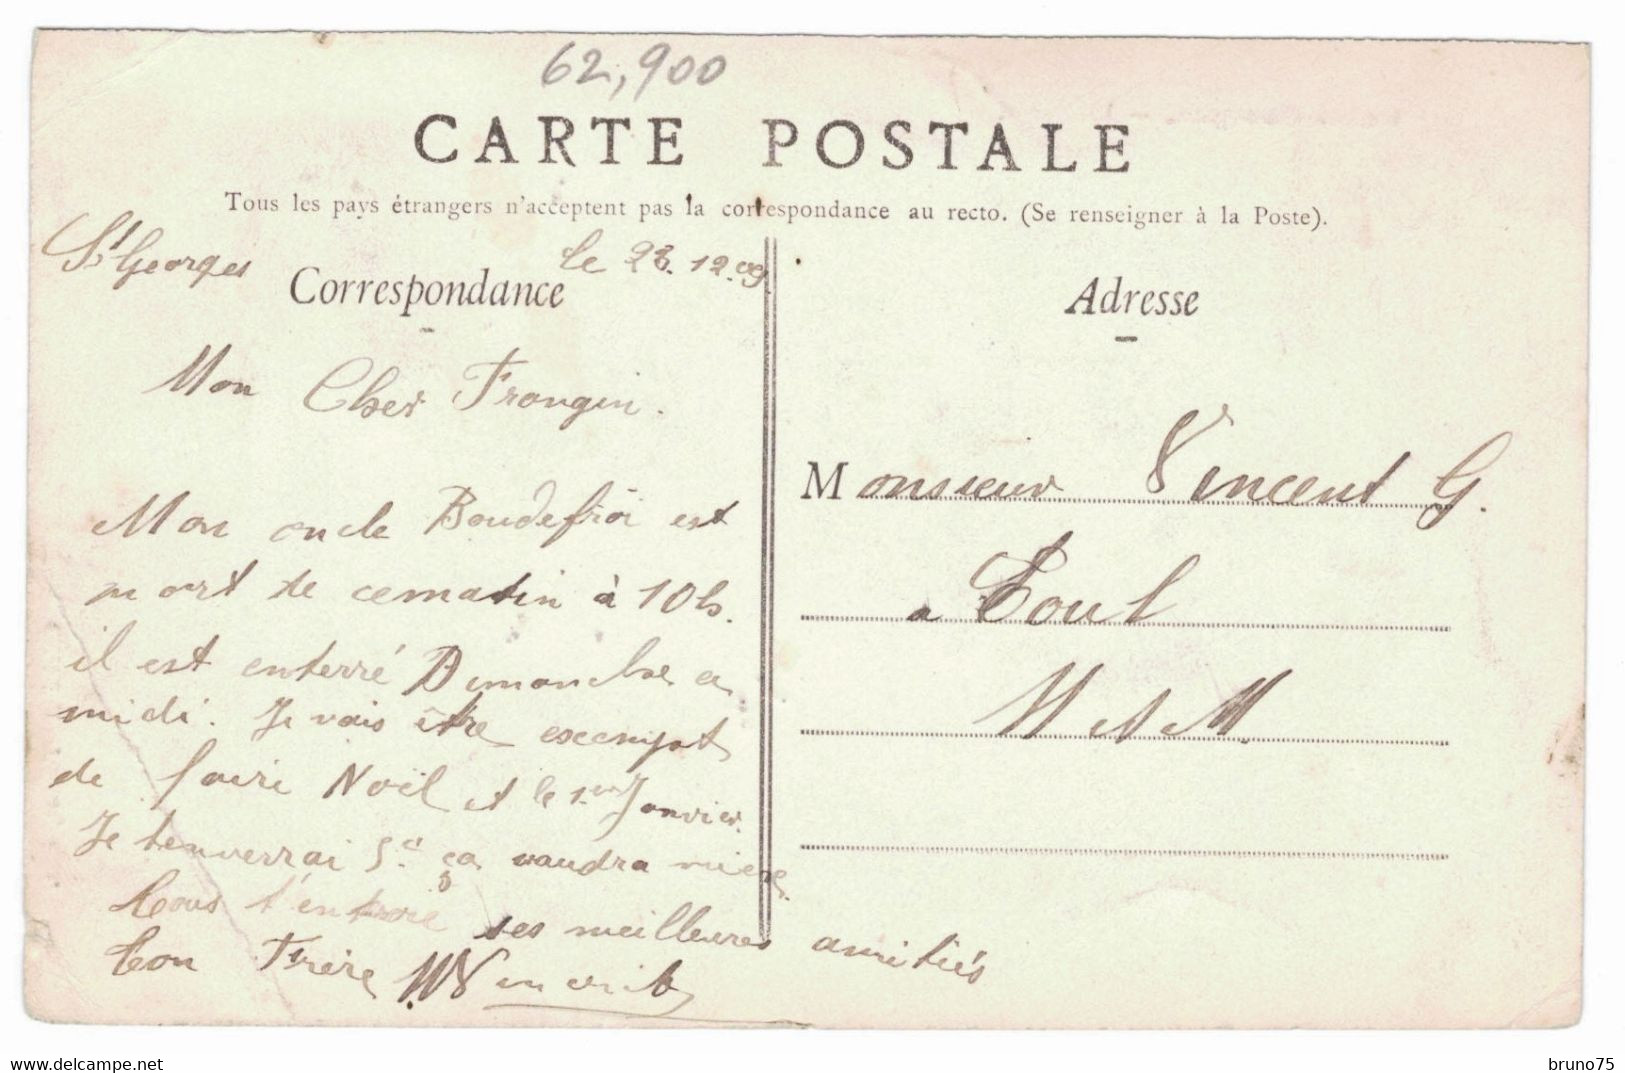 62,900
CARTE POSTALE
Tous les pays étrangers n'acceptent pas la correspondance au recto. (Se renseigner à la Poste).
St Georges le 23.12.09
Correspondance
Adresse
Mon Cher Frangin.
Mon oncle Baudefroi est
mort de cematin à 10h.
il est enterré Dimanche a
midi. Je vais être excempt
de faire Noël et le 1er Janvier.
Je tenverrai 5c ça vaudra mieux.
tous t'envoie ses meilleures amitiés
ton Frère Vincent
Monsieur Vincent G.
a Toul
M et M.
bruno75